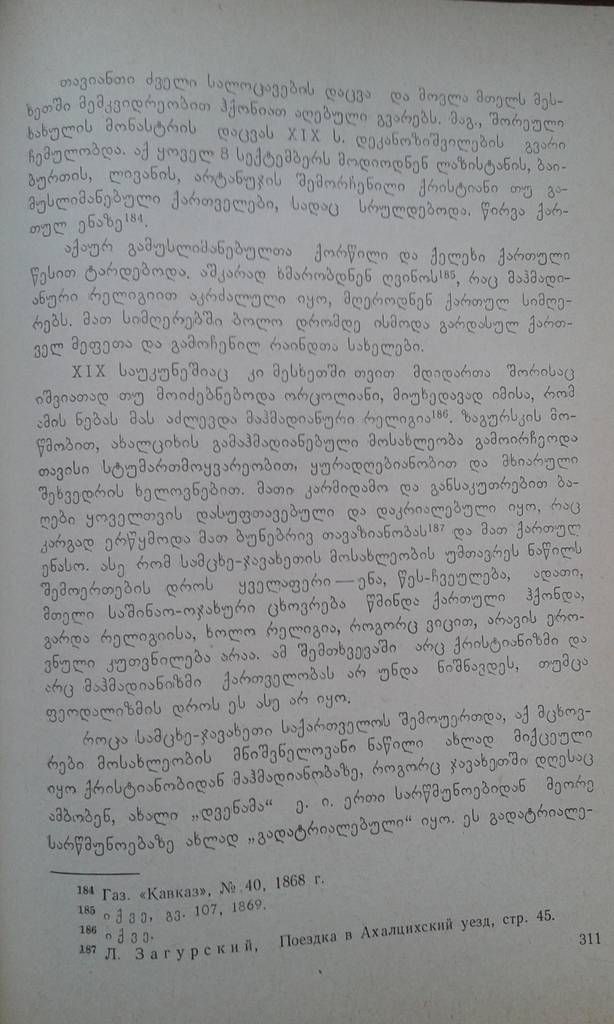 თავიანთი ძველი სალოცავების დაცვა და მოვლა მთელს მეს-
ხეთში მემკვიდრეობით ჰქონიათ აღებული გვარებს. მაგ., შორეული
ხახულის მონასტრის დაცვას XIX ს. დეკანოზიშვილების გვარი
ჩემულობდა. აქ ყოველ 8 სექტემბერს მოდიოდნენ ლაზისტანის, ბაი-
ბურთის, ლივანის, არტანუჯის შემორჩენილი ქრისტიანი თუ გა-
მუსლიმანებული ქართველები, სადაც სრულდებოდა. წირვა ქარ-
თულ ენაზე184.
აქაურ გამუსლიმანებულთა ქორწილი და ქელეხი ქართული
წესით ტარდებოდა. აშკარად ხმარობდნენ ღვინოს185, რაც მაჰმადი-
ანური რელიგიით აკრძალული იყო, მღეროდნენ ქართულ სიმღე-
რებს. მათ სიმღერებში ბოლო დრომდე ისმოდა გარდასულ ქართ-
ველ მეფეთა და გამოჩენილ რაინდთა სახელები.
XIX საუკუნეშიაც კი მესხეთში თვით მდიდართა შორისაც
იშვიათად თუ მოიძებნებოდა ორცოლიანი, მიუხედავად იმისა, რომ
ამის ნებას მას აძლევდა მაჰმადიანური რელიგია186. ზაგურსკის მო-
წმობით, ახალციხის გამაჰმადიანებული მოსახლეობა გამოირჩეოდა
თავისი სტუმართმოყვარეობით, ყურადღებიანობით და მხიარული
შეხვედრის ხელოვნებით. მათი კარმიდამო და განსაკუთრებით ბა-
ღები ყოველთვის დასუფთავებული და დაკრიალებული იყო, რაც
კარგად ერწყმოდა მათ ბუნებრივ თავაზიანობას187 და მათ ქართულ
ენასო. ასე რომ სამცხე-ჯავახეთის მოსახლეობის უმთავრეს ნაწილს
შემოერთების დროს ყველაფერი — ენა, წეს-ჩვეულება, ადათი,
მთელი საშინაო-ოჯახური ცხოვრება წმინდა ქართული ჰქონდა,
გარდა რელიგიისა, ხოლო რელიგია, როგორც ვიცით, არავის ერო-
ვნული კუთვნილება არაა. ამ შემთხვევაში არც ქრისტიანიზმი და
არც მაჰმადიანიზმი ქართველობას არ უნდა ნიშნავდეს, თუმცა
ფეოდალიზმის დროს ეს ასე არ იყო.
როცა სამცხე-ჯავახეთი საქართველოს შემოუერთდა, აქ მცხოვ-
რები მოსახლეობის მნიშვნელოვანი ნაწილი ახლად მიქცეული
იყო ქრისტიანობიდან მაჰმადიანობაზე, როგორც ჯავახეთში დღესაც
ამბობენ, ახალი „დვენამა“ ე. ი. ერთი სარწმუნოებიდან მეორე
სარწმუნოებაზე ახლად „გადატრიალებული“ იყო. ეს გადატრიალე-
184 Газ. «Кавказ», № 40, 1868 г.
185 იქვე, გვ. 107, 1869.
186 იქვე.
187 Л. Загурский, Поездка в Ахалцихский уезд, стр. 45.
311